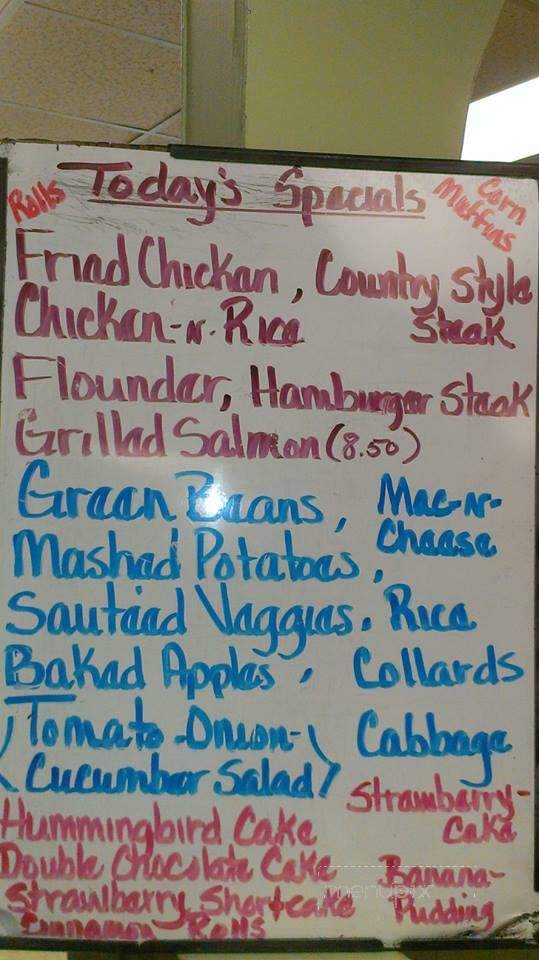 Rolls Today's Specials Corn Muffins
Fried Chicken, Country Style Steak
Chicken-n-Rice
Flounder, Hamburger Steak
Grilled Salmon (8.50)
Green Beans, Mac-n-Cheese
Mashed Potatoes,
Sauteed Veggies, Rice
Baked Apples, Collards
(Tomato-Onion- Cabbage
Cucumber Salad)
Strawberry-Cake
Hummingbird Cake
Double Chocolate Cake Banana-Pudding
Strawberry Shortcake
Cinnamon Rolls
menupix